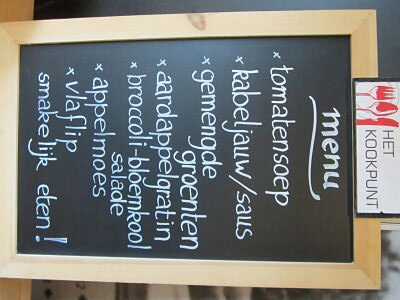 HET
KOOKPUNT
menu
× tomatensoep
× kabeljauw/saus
× gemengde
groenten
× aardappelgratin
× broccoli-bloemkool
salade
× appelmoes
× vlaflip
smakelijk eten!